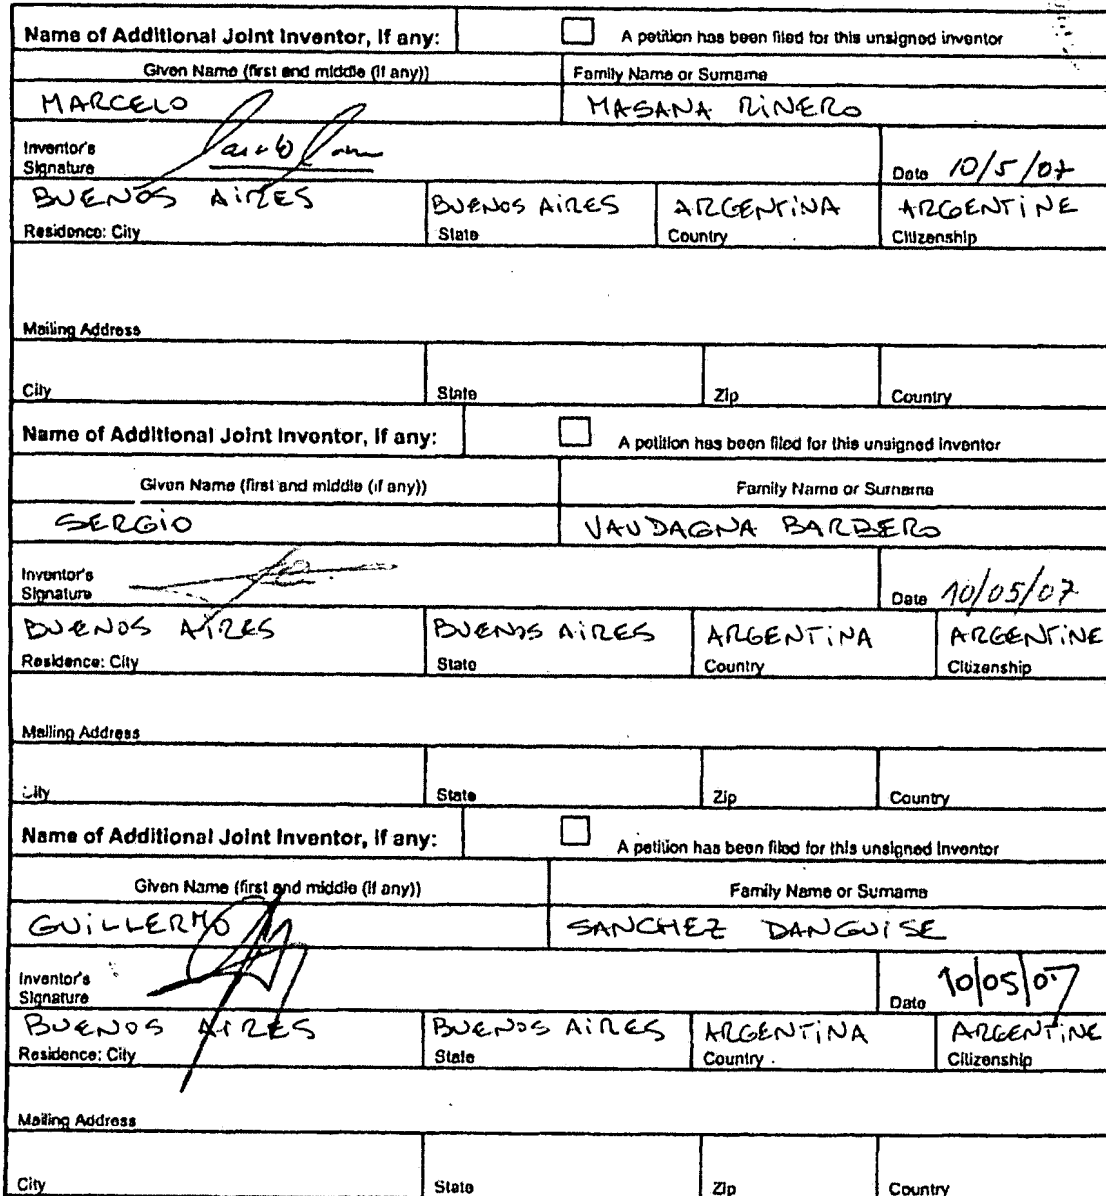 Name of Additional Joint Inventor, if any: A petition has been filed for this unsigned inventor
Given Name (first and middle (if any)) Family Name or Surname
MARCELO MASANA RINERO
Inventor's
Signature Date 10/5/07
BUENOS AIRES BUENOS AIRES ARGENTINA ARGENTINE
Residence: City State Country Citizenship
Mailing Address
City State Zip Country
Name of Additional Joint Inventor, if any: A petition has been filed for this unsigned inventor
Given Name (first and middle (if any)) Family Name or Surname
SERGIO VAUDAGNA BARBERO
Inventor's
Signature Date 10/05/07
BUENOS AIRES BUENOS AIRES ARGENTINA ARGENTINE
Residence: City State Country Citizenship
Mailing Address
City State Zip Country
Name of Additional Joint Inventor, if any: A petition has been filed for this unsigned inventor
Given Name (first and middle (if any)) Family Name or Surname
GUILLERMO SANCHEZ DANGUISE
Inventor's
Signature Date 10/05/07
BUENOS AIRES BUENOS AIRES ARGENTINA ARGENTINE
Residence: City State Country Citizenship
Mailing Address
City State Zip Country